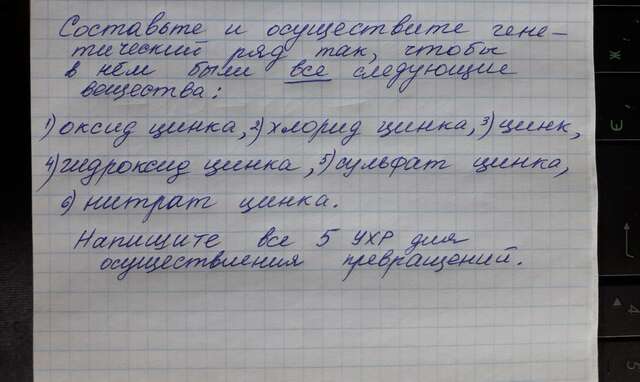 Составьте и осуществите гене-
тический ряд так, чтобы
в нём были все следующие
вещества:
1) оксид цинка, 2) хлорид цинка, 3) цинк,
4) гидроксид цинка, 5) сульфат цинка,
6) нитрат цинка.
Напишите все 5 УХР для
осуществления превращений.